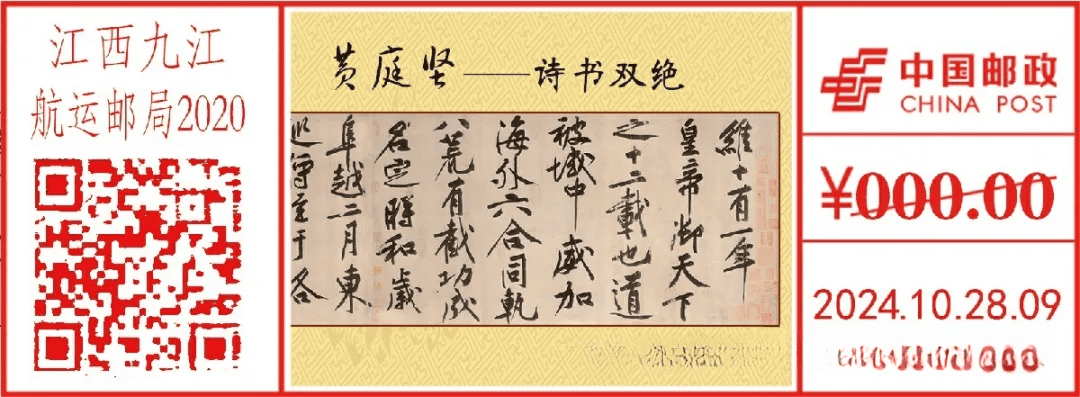 江西九江
航运邮局2020
黄庭坚——诗书双绝
維十有一年
皇帝御天下
之十二載也道
被域中威加
海外六合同軌
八荒有截功成
名定時和歲
阜越二月東
巡傳至于各
中国邮政
CHINA POST
¥000.00
2024.10.28.09